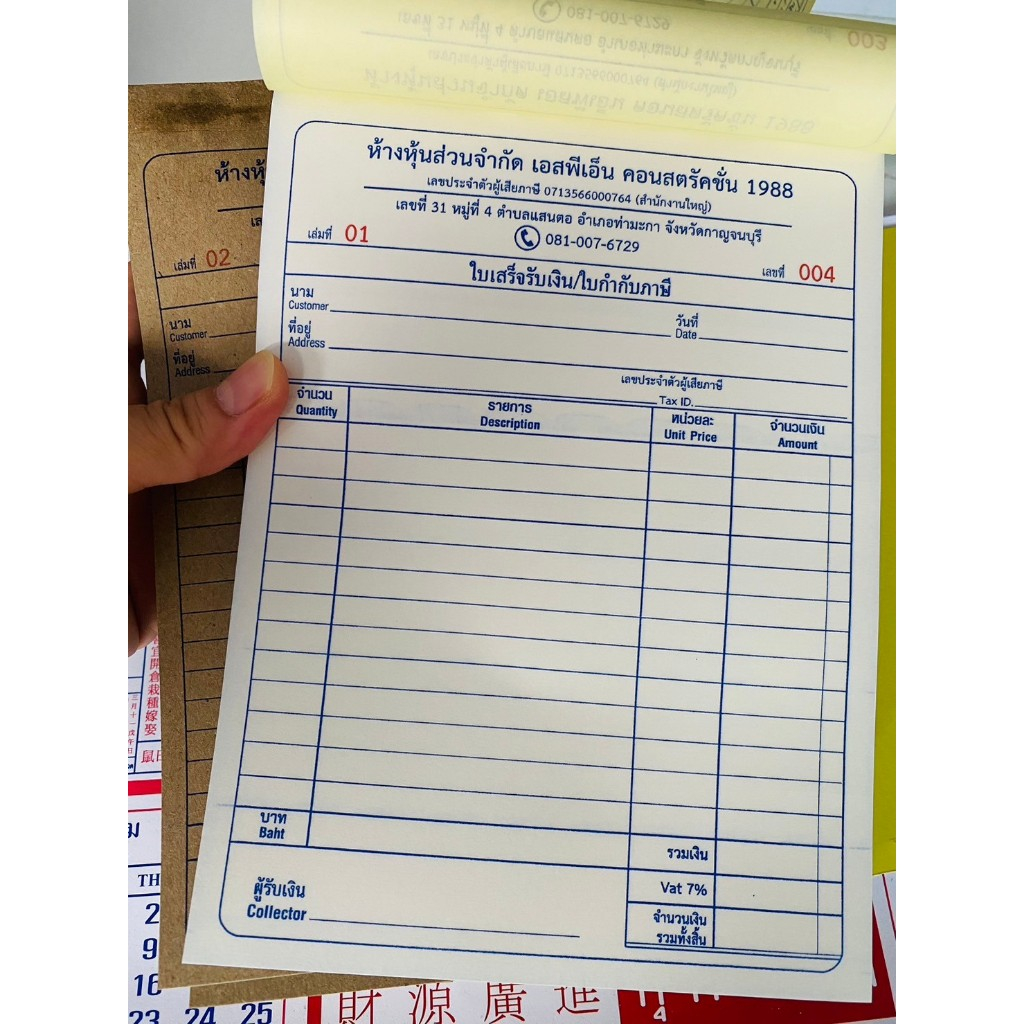 081-007-6729
003
ห้างหุ้นส่วนจำกัด เอสพีเอ็น คอนสตรัคชั่น 1988
เลขประจำตัวผู้เสียภาษี 0713566000764 (สำนักงานใหญ่)
เลขที่ 31 หมู่ที่ 4 ตำบลแสนตอ อำเภอท่ามะกา จังหวัดกาญจนบุรี
เล่มที่ 01
081-007-6729
เลขที่ 004
ใบเสร็จรับเงิน/ใบกำกับภาษี
นาม
Customer
วันที่
Date
ที่อยู่
Address
เลขประจำตัวผู้เสียภาษี
Tax ID.
จำนวน
Quantity
รายการ
Description
หน่วยละ
Unit Price
จำนวนเงิน
Amount
บาท
Baht
รวมเงิน
Vat 7%
จำนวนเงิน
รวมทั้งสิ้น
ผู้รับเงิน
Collector
เล่มที่ 02
นาม
Customer
ที่อยู่
Address
宜開倉栽種嫁娶
鼠
TH
2
9
16
23 24 25
財源廣進
4